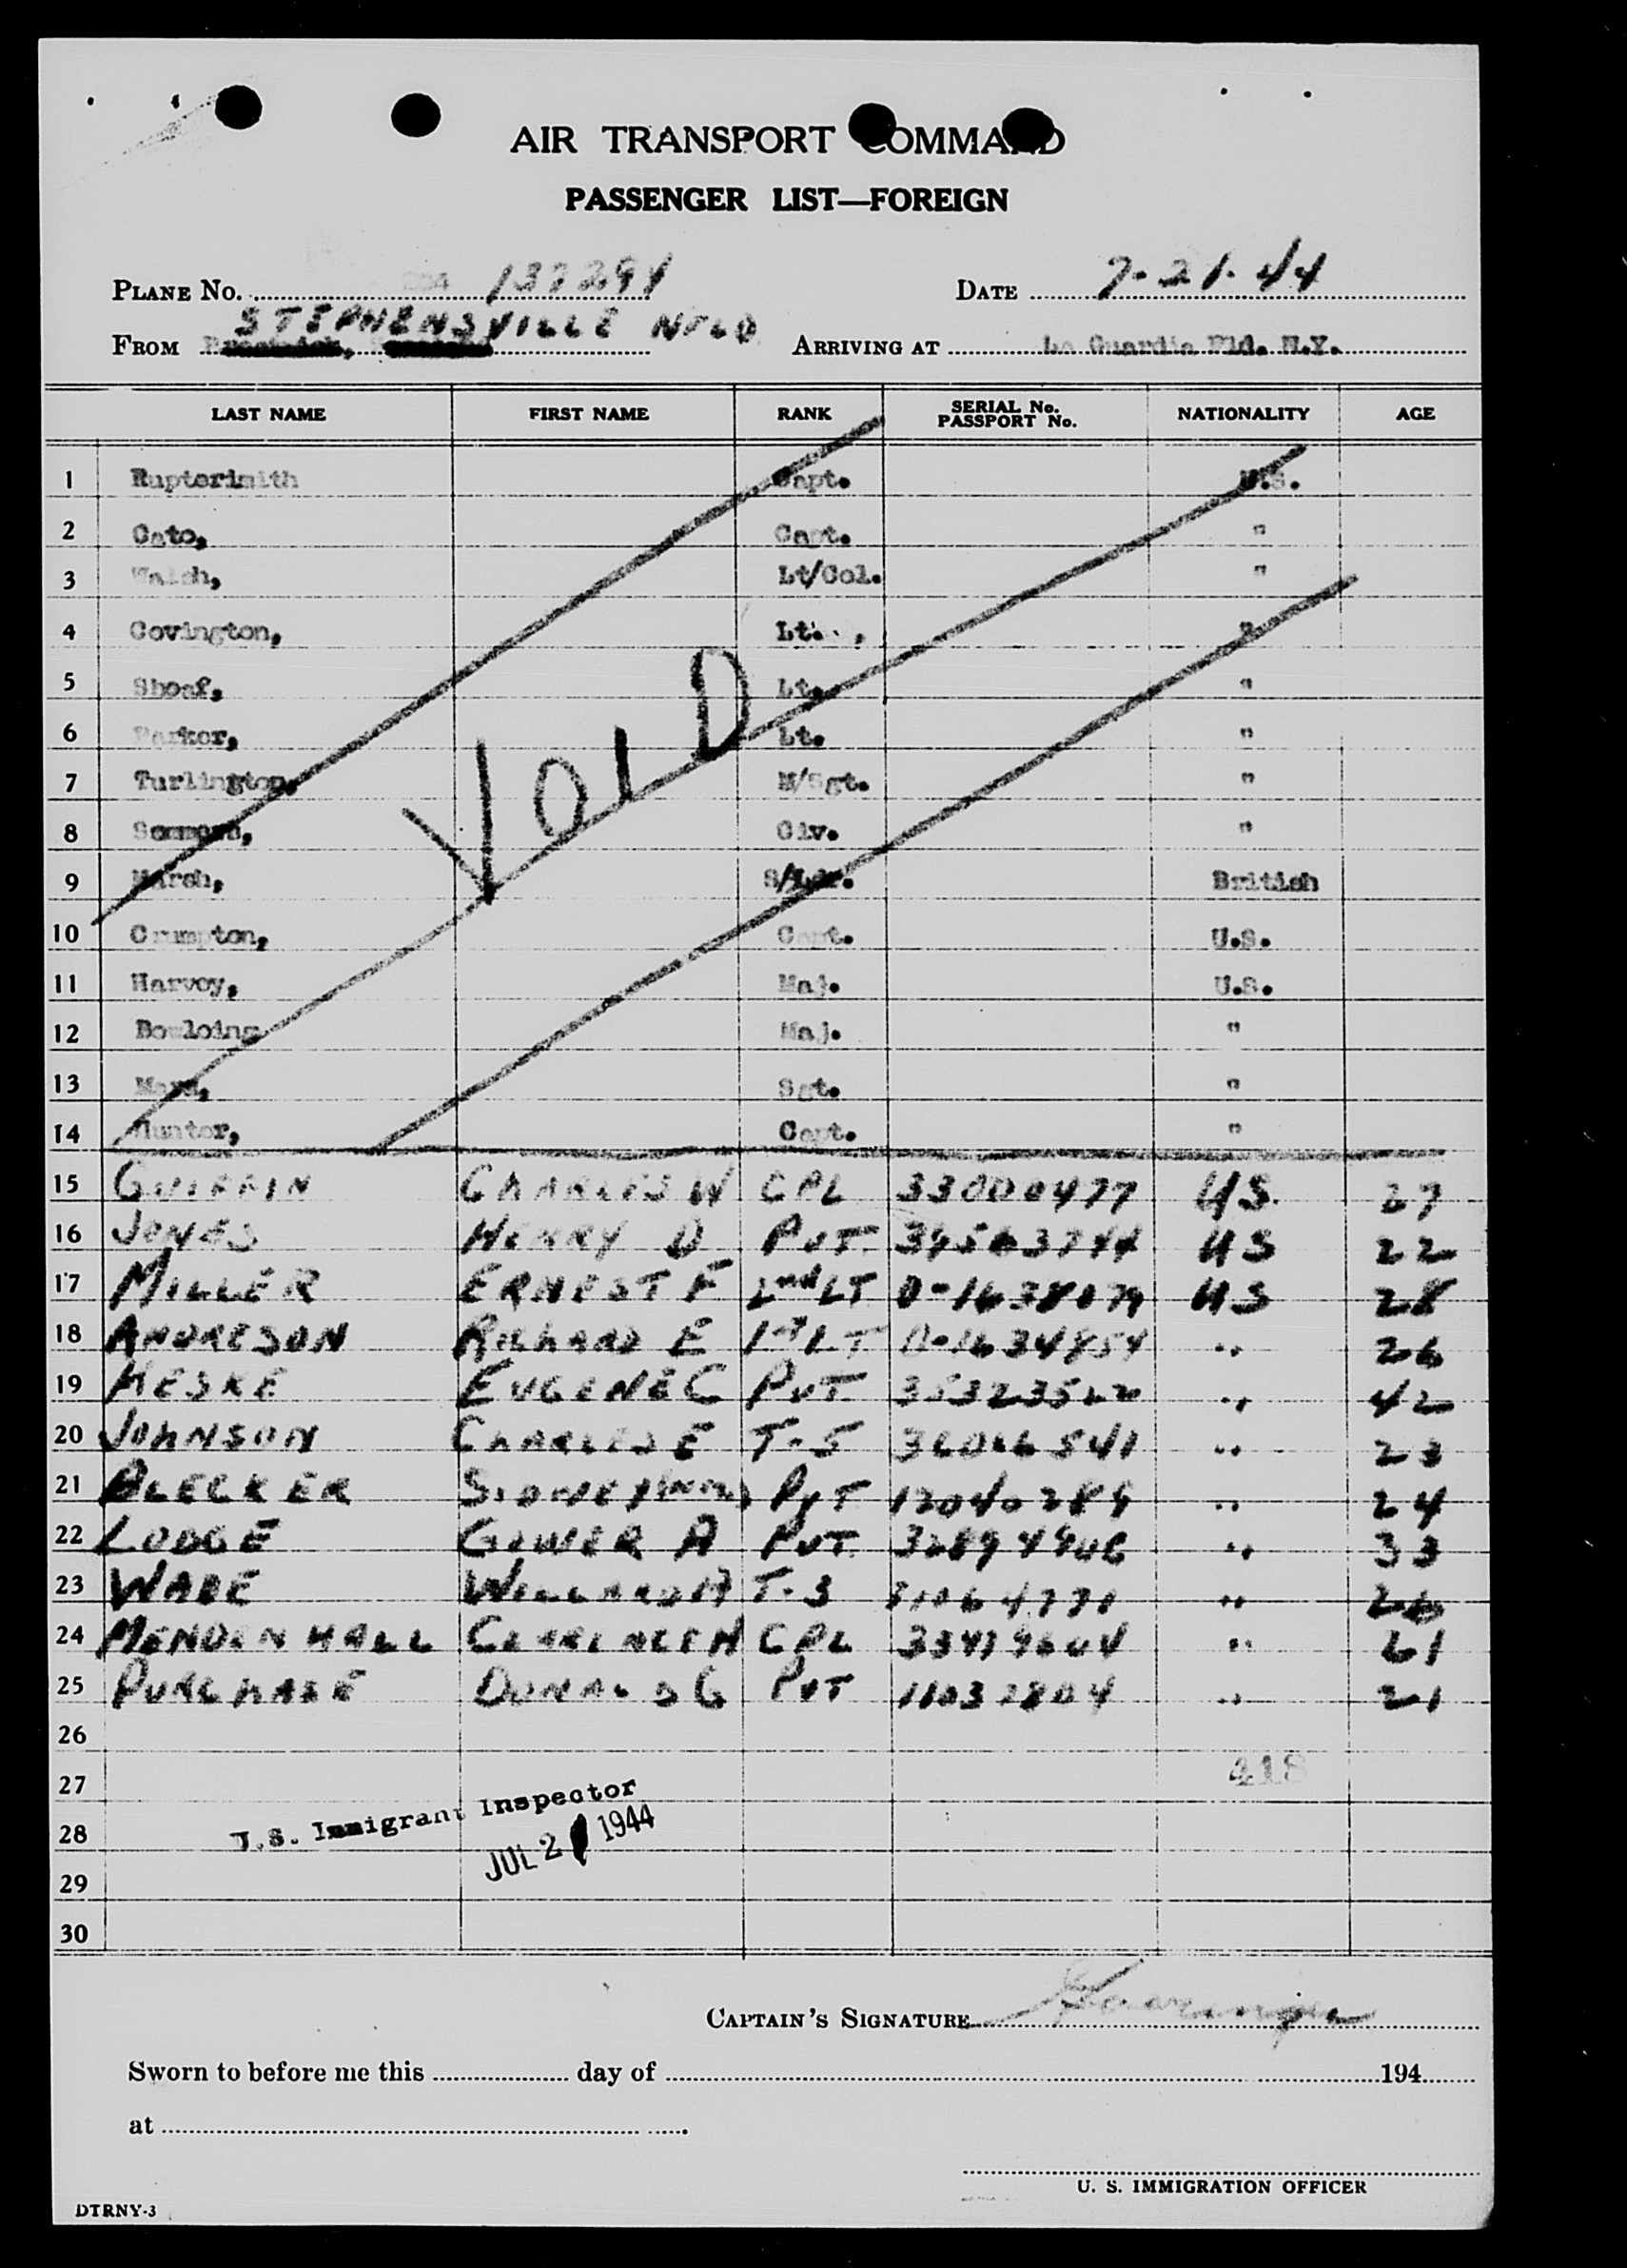 AIR TRANSPORT COMMAND
PASSENGER LIST—FOREIGN
PLANE No. 137294 DATE 7-21-44
STEPHENSVILLE NFLD
FROM ARRIVING AT La Guardia Fld. N.Y.
LAST NAME FIRST NAME RANK SERIAL No. PASSPORT No. NATIONALITY AGE
1 Capt. U.S.
2 Cato, Capt. "
3 Lt/Col. "
4 Covington, Lt. "
5 Shoaf, Lt. "
6 Parker, Lt. "
7 Turlington, M/Sgt. "
8 Civ. "
VOID
9 Marsh, S/Ldr. British
10 Crumpton, Capt. U.S.
11 Harvey, Maj. U.S.
12 Maj. "
13 Sgt. "
14 Hunter, Capt. "
15 CHARLES W CPL 33000477 US 27
16 JONES HENRY D PVT 22
17 MILLER ERNEST F 2nd LT O-1638079 US 28
18 ANDRESON RICHARD E 1st LT O-1634854 " 26
19 HESKE EUGENE C PVT " 42
20 JOHNSON CHARLES E T-5 "
21 BLECKER PVT 12040289 " 24
22 LODGE GOWER A PVT " 33
23 WADE WILLARD A T-3 " 26
24 MENDENHALL CLARENCE H CPL "
25 PURCHASE DONALD G PVT " 21
26
27 418
28 U.S. Immigrant Inspector
JUL 21 1944
29
30
CAPTAIN'S SIGNATURE
Sworn to before me this day of 194
at
U. S. IMMIGRATION OFFICER
DTRNY-3